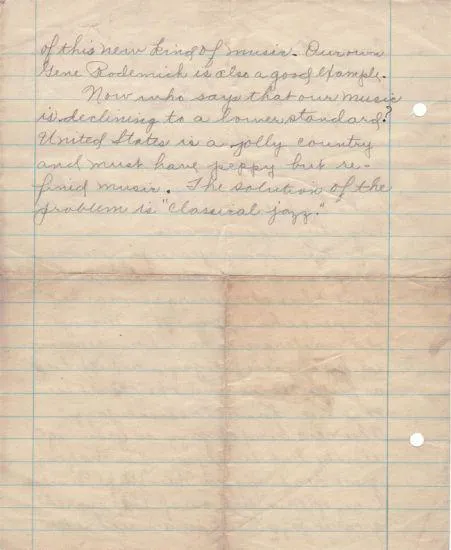 of this new kind of music. Our own
Gene Rodemich is also a good example.
Now who says that our music
is declining to a lower standard?
United States is a jolly country
and must have peppy but re-
fined music. The solution of the
problem is "classical jazz."